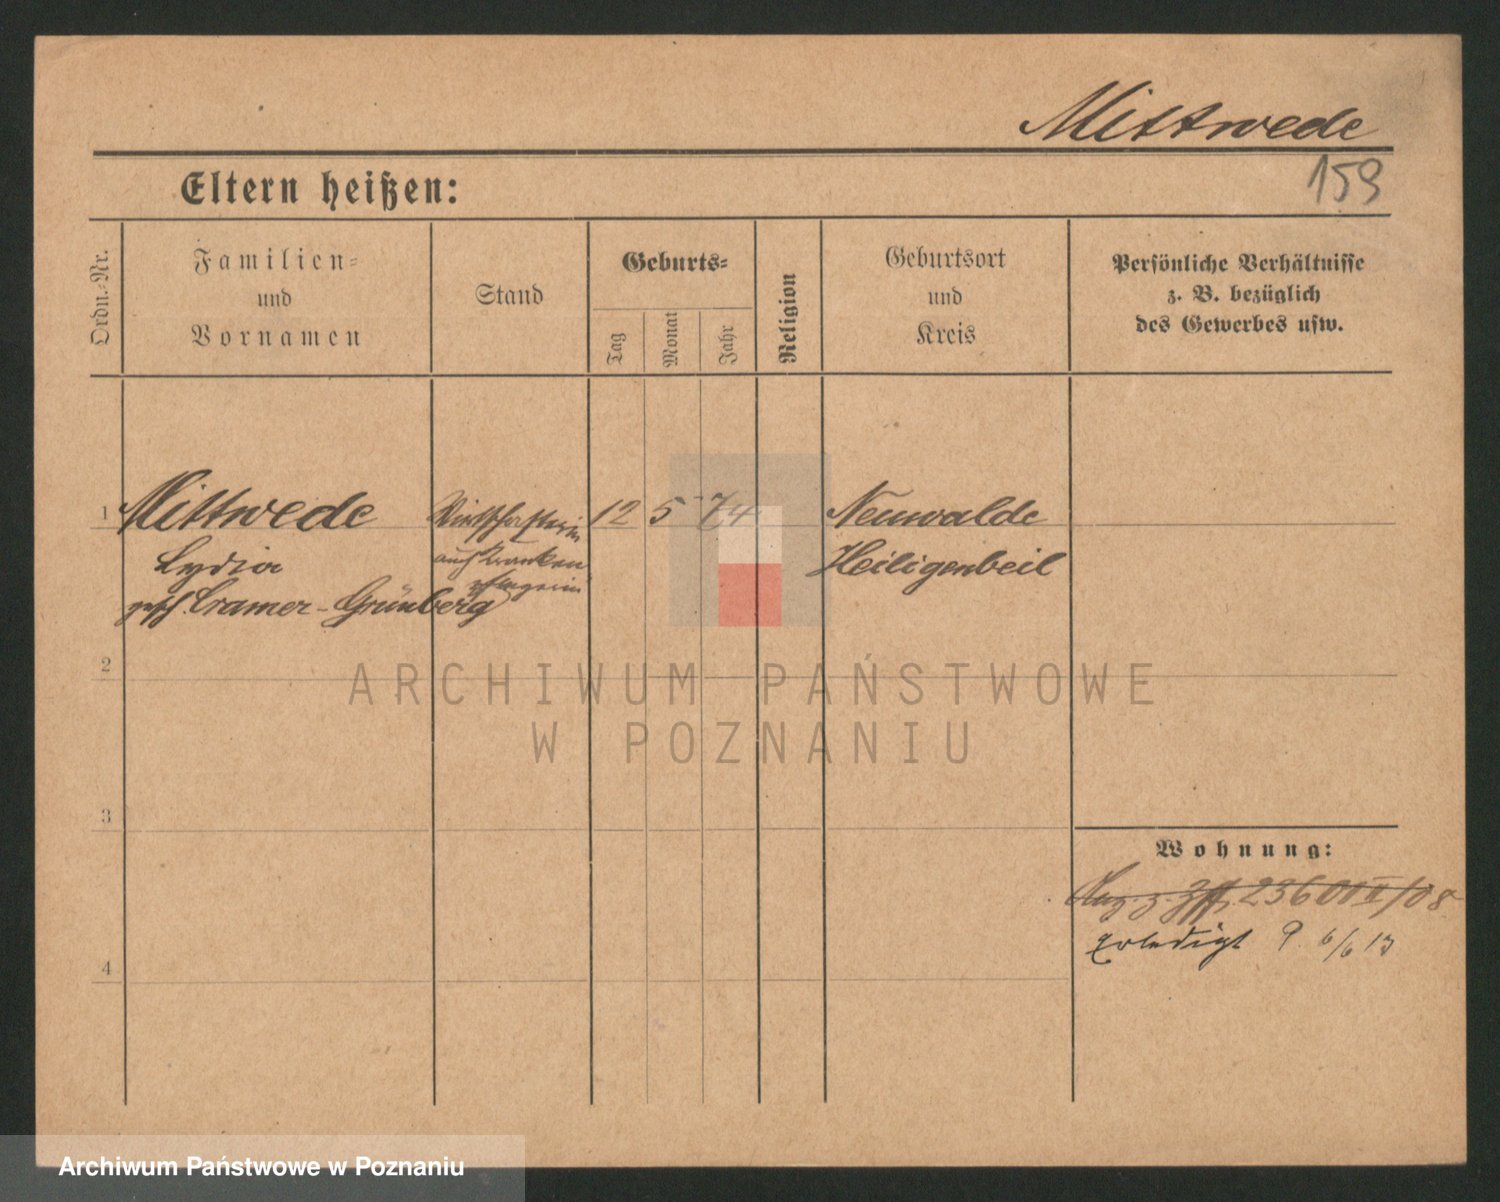 Mittwede
159
Eltern heißen:
Ordn.-Nr.
Familien-
und
Vornamen
Stand
Geburts-
Tag
Monat
Jahr
Religion
Geburtsort
und
Kreis
Persönliche Verhältnisse
z. B. bezüglich
des Gewerbes usw.
1 Mittwede Wirtschafterin 12 5 74 Neuwalde
Lydia auch Kranken Heiligenbeil
pflegerin
gesch. Cramer-Grünberg
2
ARCHIWUM PAŃSTWOWE
W POZNANIU
3
Wohnung:
23600 II/08
Erledigt 9. 6/6 13
4
Archiwum Państwowe w Poznaniu